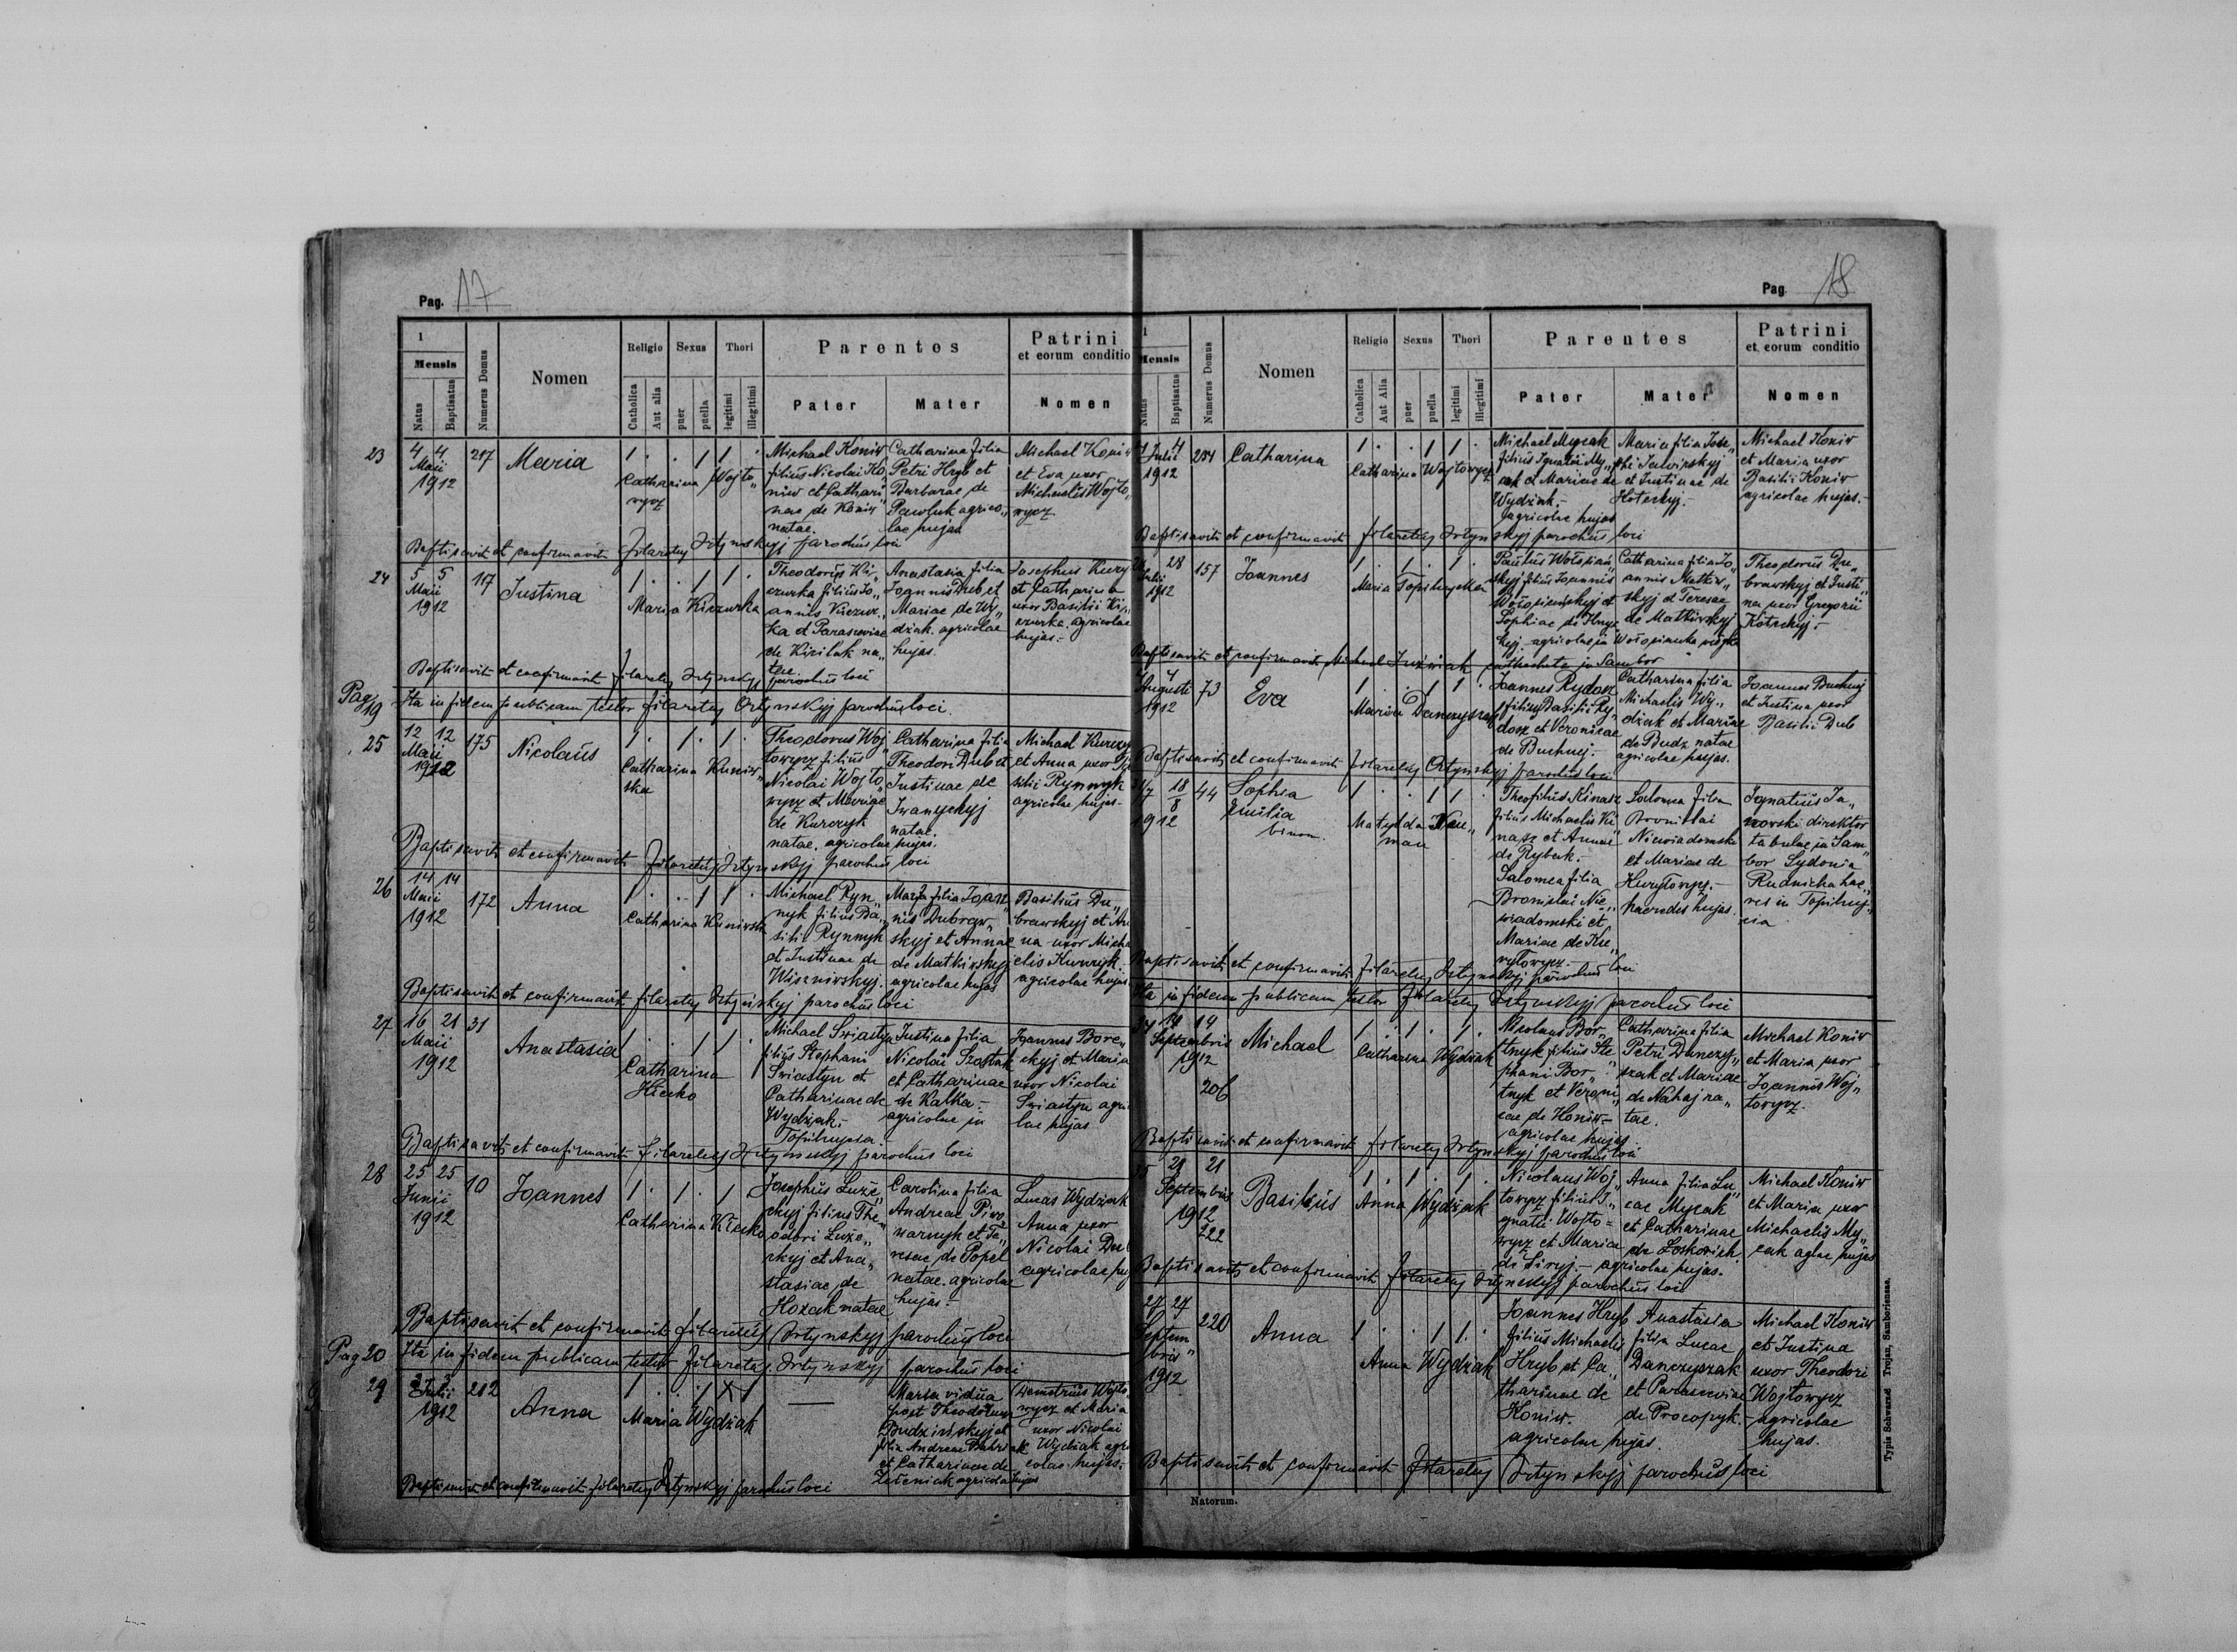 Pag. 17
1
Mensis
Natus
Baptisatus
Numerus Domus
Nomen
Religio
Catholica
Aut alia
Sexus
puer
puella
Thori
legitimi
illegitimi
Parentes
Pater
Mater
Patrini
et eorum conditio
Nomen
23
4 4
Maii
1912
217
Maria
Catharina Wojto„
wycz
Michael Koniw
filius Nicolai Ko„
niw et Cathari„
nae de Koniw
natae.
Catharina filia
Petri Hryb et
Barbarae de
Pawluk agrico„
lae hujus
Michael Koniw
et Eva uxor
Michaelis Wojto„
wycz
Baptisavit et confirmavit Filaretej Ortynskyj parochus loci
24
5 5
Maii
1912
117
Justina
Maria Kiczurka
Theodorus Ki„
czurka filius Jo„
annis Kiczur„
ka et Parasceviae
de Kizilak na„
tae
Anastasia filia
Joannis Dub et
Mariae de Wy„
dżak. agricolae
hujas.
Josephus Kurzy
et Catharina
uxor Basilii Ki„
czurka. agricolae
hujas.-
Baptisavit et confirmavit Filaretej Ortynskyj parochus loci
Pag 19
Ita in fidem publicam testor Filaretej Ortynskyj parochus loci.
25
12 12
Maii
1912
175
Nicolaus
Catharina Kuniw„
ska
Theodorus Woj„
towycz filius
Nicolai Wojto„
wycz et Mariae
de Kurczyk
natae. agricolae hujas.
Catharina filia
Theodori Dub et
Justinae de
Iwanyckyj
natae.
Michael Kurczy
et Anna uxor
silii Rynnyk
agricolae hujas-
Baptisavit et confirmavit Filaretej Ortynskyj parochus loci
26
14 14
Maii
1912
172
Anna
Catharina Kuniwsk
Michael Ryn„
nyk filius Ba„
silii Rynnyk
et Justinae de
Wiszniwskyj.
Maria filia Joan„
nis Dubraw„
skyj et Annae
de Matkiwskyj
agricolae hujas
Basilius Du„
brawskyj et An
na uxor Micha
elis Kurczyk.
agricolae hujas
Baptisavit et confirmavit Filaretej Ortynskyj parochus loci
27
16 21
Maii
1912
31
Anastasia
Catharina
Klecko
Michael Swiastyn
filius Stephani
Swiastyn et
Catharinae de
Wydżak.
Justina filia
Nicolai Szostak
et Catharinae
de Kalka.-
agricolae in
Topilnycia.-
Joannes Bore„
ckyj et Maria
uxor Nicolai
Swiastyn agri
lae hujas
Baptisavit et confirmavit Filaretej Ortynskyj parochus loci
28
25 25
Junii
1912
10
Joannes
Catharina Klecko
Josephus Luże„
ckyj filius The„
odori Luże„
ckyj et Ana„
stasiae de
Hozak natae
Carolina filia
Andreae Piwo
warnyk et Te„
resae de Popel
natae. agricolae
hujas.-
Lucas Wydżak
Anna uxor
Nicolai Dub
agricolae huj
Baptisavit et confirmavit Filaretej Ortynskyj parochus loci
Pag 20
Ita in fidem publicam testor Filaretej Ortynskyj parochus loci
29
Julii
1912
212
Anna
Maria Wydżak
Maria vidua
post Theodorum
Budzinskyj et
filia Andreae
et Catharinae de
agricolae hujas
Demetrius Wojto
wycz et Maria
uxor Nicolai
Wydżak agri
colae hujas.
Baptisavit et confirmavit Filaretej Ortynskyj parochus loci
Pag 18
1
Mensis
Natus
Baptisatus
Numerus Domus
Nomen
Religio
Catholica
Aut Alia
Sexus
puer
puella
Thori
legitimi
illegitimi
Parentes
Pater
Mater
Patrini
et eorum conditio
Nomen
4
Julii
1912
Catharina
Catharina Wojtowycz
Michael Mycak
filius Ignatii My„
cak et Mariae de
Wydżak.-
agricolae hujas
Maria filia Jose„
phi
et Justinae de
Michael Koniw
et Maria uxor
Basilii Koniw
agricolae hujas.-
Baptisavit et confirmavit Filaretej Ortynskyj parochus loci
28
Julii
1912
157
Joannes
Maria
Paulus Wołosian„
skyj filius Joannis
et
Sophiae de
Catharina filia Jo„
annis Matkiw„
skyj et Teresae
de Matkiwskyj
Theodorus Du„
brawskyj et Justi„
na uxor Gregorii
Kotickyj.-
Baptisavit et confirmavit Michael catecheta in Sambor
4
Augusti
1912
73
Eva
Maria
Joannes Rydosz
filius Basilii Ry„
dosz et Veronicae
de Buchnij.-
Catharina filia
Michaelis Wy„
dżak et Mariae
de Budz natae
agricolae hujas.
Joannes Buchnij
et Justina uxor
Basilii Dub
Baptisavit et confirmavit Filaretej Ortynskyj parochus loci
18
8
1912
44
Sophia
Emilia
binom.
Matylda Neu„
man
Theofilus Kinasz
filius Michaelis Ki„
nasz et Annae
de Rybak.-
Salomea filia
Bronislai Nie„
wiadomski et
Mariae de
Salomea filia
Bronislai
Niewiadomski
et Mariae de
haeredes hujas.
Ignatius Ja„
worski direktor
tabulae in Sam„
bor Sydonia
Rudnicka hae„
res in Topilny„
cia
Baptisavit et confirmavit Filaretej Ortynskyj parochus loci
Ita in fidem publicam testor Filaretej Ortynskyj parochus loci
34
19 19
Septembris
1912
206
Michael
Catharina Wydżak
Nicolaus Bor„
tnyk filius Ste„
phani Bor„
tnyk et Veroni„
cae de Koniw-
agricolae hujas.
Catharina filia
Petri Danczy„
szak et Mariae
de Nahaj na„
tae.
Michael Koniw
et Maria uxor
Joannis Woj„
towycz.
Baptisavit et confirmavit Filaretej Ortynskyj parochus loci
35
21 21
Septembris
1912
222
Basilius
Anna Wydżak
Nicolaus Woj„
towycz filius I„
gnatii Wojto=
wycz et Maria
de Siryj.- agricolae hujas.
Anna filia Lu„
cae Mycak
et Catharinae
Michael Koniw
et Maria uxor
Michaelis My„
cak aglae hujas
Baptisavit et confirmavit Filaretej Ortynskyj parochus loci
27 27
Septem
bris
1912
220
Anna
Anna Wydżak
Joannes Hryb
filius Michaelis
Hryb et Ca„
tharinae de
Koniw.
agricolae hujas.
Anastasia
filia Lucae
Danczyszak
et Parasceviae
de Procopyk.-
Michael Koniw
et Justina
uxor Theodori
Wojtowycz
agricolae
hujas.
Baptisavit et confirmavit Filaretej Ortynskyj parochus loci
Natorum.
Typis Schwarz & Trojan, Samboriensae.